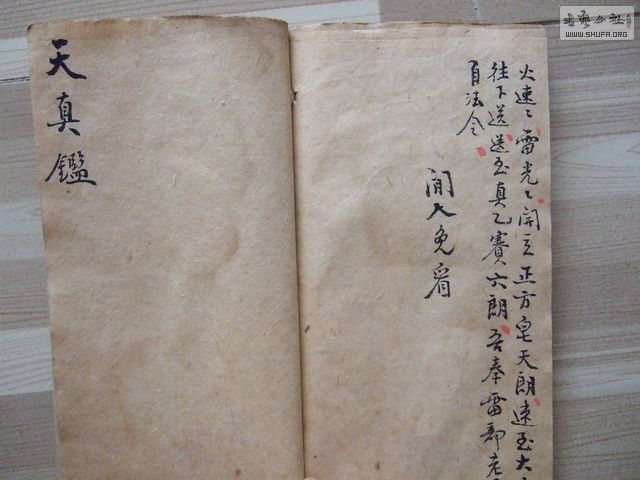 火速〻雷光〻開立正方皂天朗速至大
往下送送至真乙賽六朗吾奉雷部老
百法令
閒人免看
天真鑑
書藝公社
WWW.SHUFA.ORG